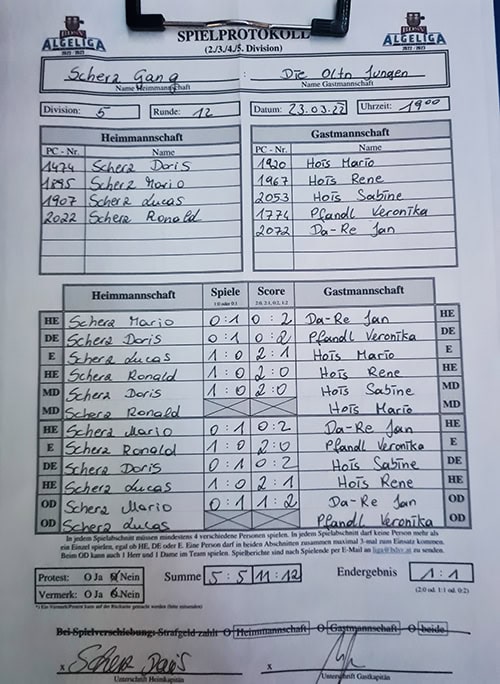 BDSV ALGELIGA 2022 - 2023 SPIELPROTOKOLL BDSV ALGELIGA 2022 - 2023
(2./3./4./5. Division)
Scherz Gang : Die Oltn Jungen
Name Heimmannschaft Name Gastmannschaft
Division: 5 Runde: 12 Datum: 23.03.22 Uhrzeit: 19 00
Heimmannschaft Gastmannschaft
PC - Nr. Name PC - Nr. Name
1474 Scherz Doris 1920 Hois Mario
1895 Scherz Mario 1967 Hois Rene
1907 Scherz Lucas 2053 Hois Sabine
2022 Scherz Ronald 1774 Pfandl Veronika
2072 Da-Re Jan
Heimmannschaft Spiele Score Gastmannschaft
1:0 oder 0:1 2:0, 2:1, 0:2, 1:2
HE Scherz Mario 0:1 0:2 Da-Re Jan HE
DE Scherz Doris 0:1 0:2 Pfandl Veronika DE
E Scherz Lucas 1:0 2:1 Hois Mario E
HE Scherz Ronald 1:0 2:0 Hois Rene HE
MD Scherz Doris 1:0 2:0 Hois Sabine MD
MD Scherz Ronald Hois Mario MD
HE Scherz Mario 0:1 0:2 Da-Re Jan HE
E Scherz Ronald 1:0 2:0 Pfandl Veronika E
DE Scherz Doris 0:1 0:2 Hois Sabine DE
HE Scherz Lucas 1:0 2:1 Hois Rene HE
OD Scherz Mario 0:1 1:2 Da-Re Jan OD
OD Scherz Lucas Pfandl Veronika OD
In jedem Spielabschnitt müssen mindestens 4 verschiedene Personen spielen. In jedem Spielabschnitt darf keine Person mehr als
ein Einzel spielen, egal ob HE, DE oder E. Eine Person darf in beiden Abschnitten zusammen maximal 3-mal zum Einsatz kommen.
Beim OD kann auch 1 Herr und 1 Dame im Team spielen. Spielberichte sind nach Spielende per E-Mail an liga@bdsv.at zu senden.
Protest: O Ja O Nein Summe 5:5 11:12 Endergebnis 1:1
Vermerk: O Ja O Nein (2:0 od. 1:1 od. 0:2)
Bei Spielverschiebung: Strafgeld zahlt O Heimmannschaft O Gastmannschaft O beide
x Scherz Doris x
Unterschrift Heimkapitän Unterschrift Gastkapitän